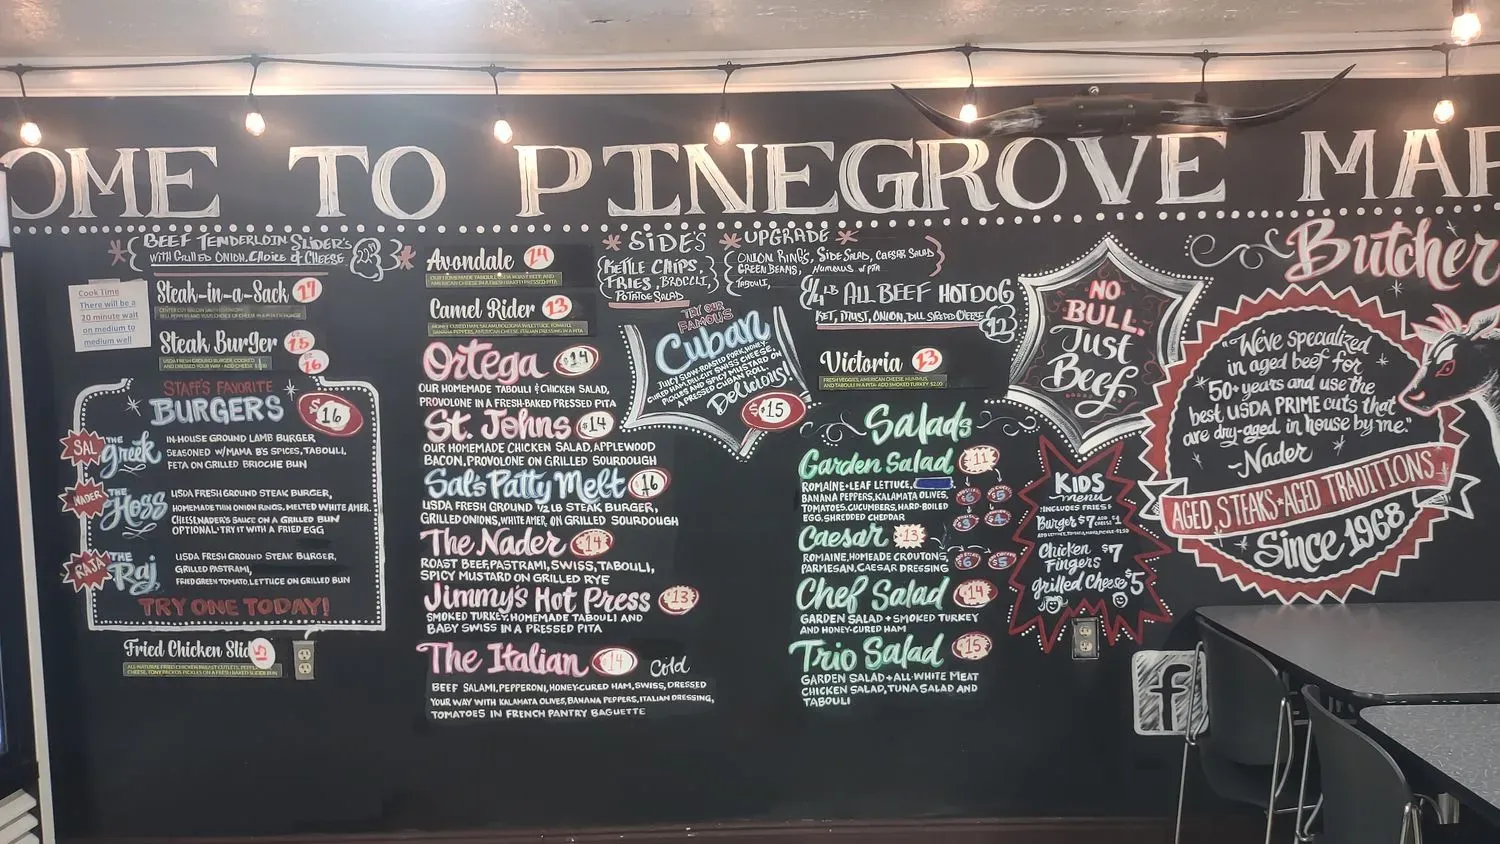 OME TO PINEGROVE MAR
BEEF TENDERLOIN SLIDER'S
WITH GRILLED ONION. CHOICE OF CHEESE
Cook Time
There will be a
20 minute wait
on medium to
medium well
Steak-in-a-Sack 17
Steak Burger 15
16
USDA FRESH GROUND BURGER, COOKED
AND DRESSED YOUR WAY - ADD CHEESE
STAFF'S FAVORITE
BURGERS $16
SAL THE Greek
IN-HOUSE GROUND LAMB BURGER,
SEASONED W/MAMA B'S SPICES, TABOULI,
FETA ON GRILLED BRIOCHE BUN
NADER THE Hoss
USDA FRESH GROUND STEAK BURGER,
HOMEMADE THIN ONION RINGS, MELTED WHITE AMER.
CHEESE NADER'S SAUCE ON A GRILLED BUN
OPTIONAL TRY IT WITH A FRIED EGG
RAJA THE Raj
USDA FRESH GROUND STEAK BURGER,
GRILLED PASTRAMI,
FRIED GREEN TOMATO, LETTUCE ON GRILLED BUN
TRY ONE TODAY!
Fried Chicken Slid 15
Avondale 24
Camel Rider 13
Ortega $14
OUR HOMEMADE TABOULI & CHICKEN SALAD,
PROVOLONE IN A FRESH-BAKED PRESSED PITA
St. Johns $14
OUR HOMEMADE CHICKEN SALAD, APPLEWOOD
BACON, PROVOLONE ON GRILLED SOURDOUGH
Sal's Patty Melt $16
USDA FRESH GROUND 1/2 LB STEAK BURGER,
GRILLED ONIONS, WHITE AMER. ON GRILLED SOURDOUGH
The Nader $14
ROAST BEEF, PASTRAMI, SWISS, TABOULI,
SPICY MUSTARD ON GRILLED RYE
Jimmy's Hot Press $13
SMOKED TURKEY, HOMEMADE TABOULI AND
BABY SWISS IN A PRESSED PITA
The Italian $14 Cold
BEEF SALAMI, PEPPERONI, HONEY-CURED HAM, SWISS, DRESSED
YOUR WAY WITH KALAMATA OLIVES, BANANA PEPPERS, ITALIAN DRESSING,
TOMATOES IN FRENCH PANTRY BAGUETTE
SIDE'S
KETTLE CHIPS,
FRIES, BROCCLI,
POTATOE SALAD
UPGRADE
ONION RING'S, SIDE SALAD, CAESAR SALAD
GREEN BEANS, HUMMUS & PITA
TABOULI,
1/4 LB ALL BEEF HOTDOG
KET, MUST, ONION, DILL SHREDED CHEESE 12
TRY OUR
FAMOUS
Cuban
JUICY SLOW-ROASTED PORK, HONEY-
CURED HAM, THIN-CUT SWISS CHEESE,
PICKLES AND SPICY MUSTARD ON
A PRESSED CUBAN ROLL.
Delicious!
$15
Victoria 13
FRESH VEGGIES, AMERICAN CHEESE, HUMMUS,
AND TABOULI IN A PITA ADD SMOKED TURKEY $2.00
Salads
Garden Salad $11
ROMAINE+LEAF LETTUCE,
BANANA PEPPERS, KALAMATA OLIVES,
TOMATOES, CUCUMBERS, HARD-BOILED
EGG, SHREDDED CHEDDAR
Caesar $13
ROMAINE, HOMEADE CROUTONS,
PARMESAN, CAESAR DRESSING
Chef Salad $14
GARDEN SALAD + SMOKED TURKEY
AND HONEY-CURED HAM
Trio Salad $15
GARDEN SALAD + ALL-WHITE MEAT
CHICKEN SALAD, TUNA SALAD AND
TABOULI
NO
BULL.
Just
Beef.
KIDS
menu
INCLUDES FRIES &
Burger $7
Chicken
Fingers $7
Grilled Cheese $5
Butcher
"We've specialized
in aged beef for
50+ years and use the
best USDA PRIME cuts that
are dry-aged in house by me."
-Nader
AGED STEAKS + AGED TRADITIONS
Since 1968
f